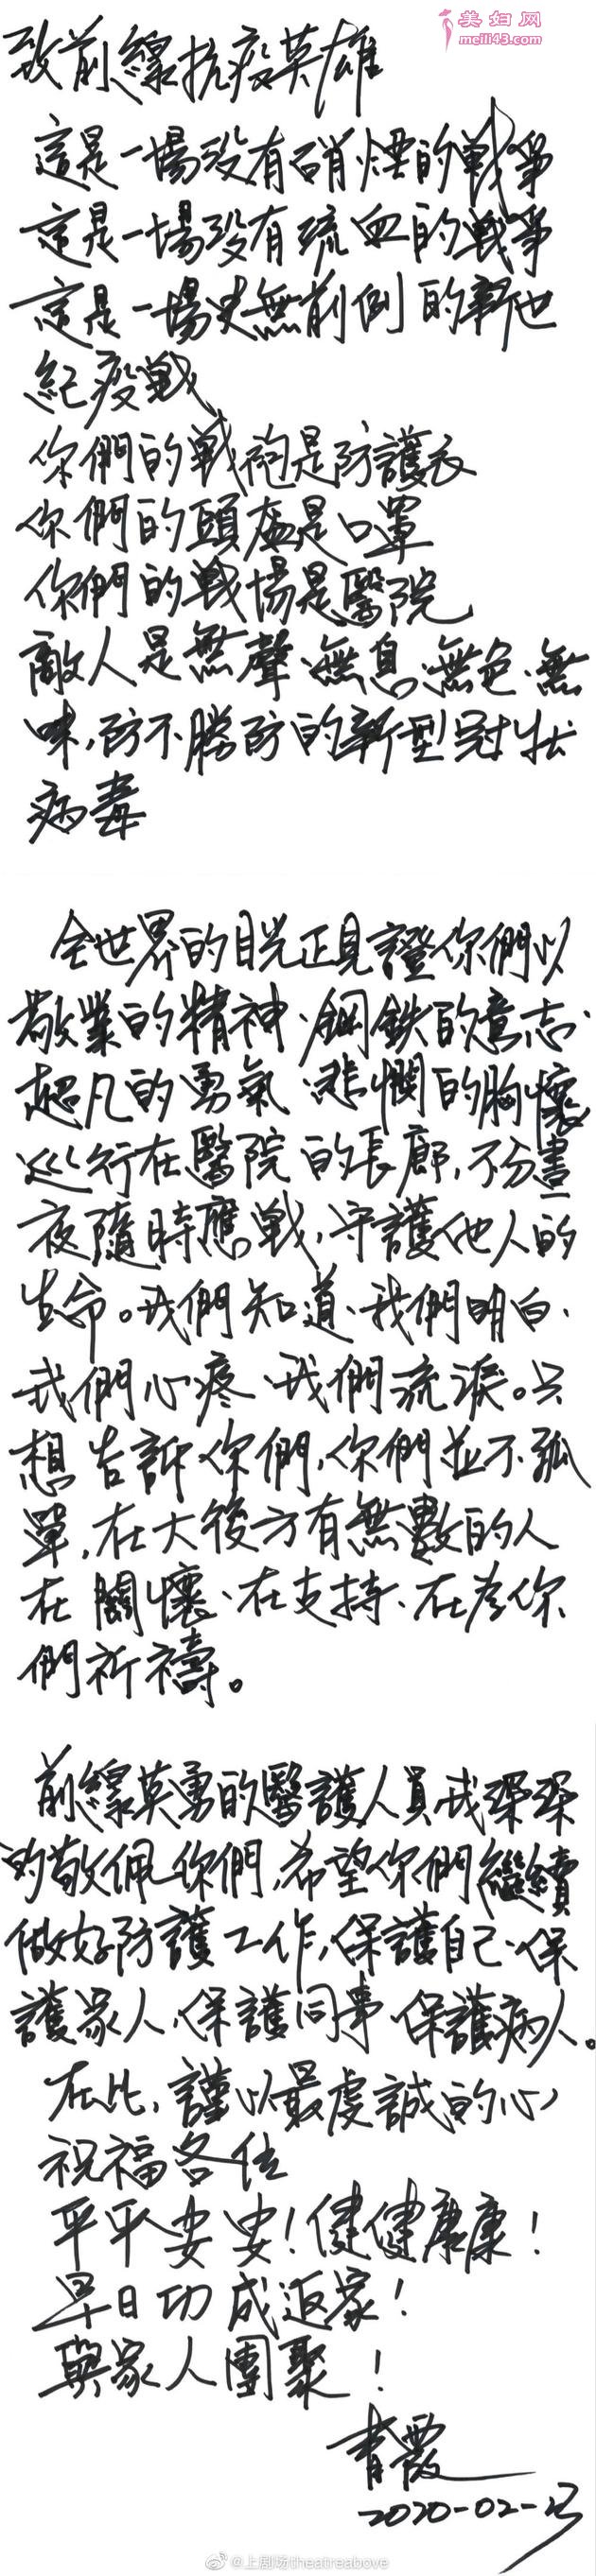 美妇网
meili43.com
致前線抗疫英雄
這是一場没有硝煙的戰爭
這是一場没有流血的戰爭
這是一場史無前例的新世
紀疫戰
你們的戰袍是防護衣
你們的頭盔是口罩
你們的戰場是醫院
敵人是無聲、無息、無色、無
味,防不勝防的新型冠狀
病毒
全世界的目光正見證你們以
敬業的精神、鋼鉄的意志、
超凡的勇氣、悲憫的胸懷
巡行在醫院的長廊,不分晝
夜隨時應戰,守護他人的
生命。我們知道、我們明白、
我們心疼、我們流淚。只
想告訴你們,你們並不孤
單,在大後方有無數的人
在關懷、在支持、在為你
們祈禱。
前線英勇的醫護人員我深深
的敬佩你們,希望你們繼續
做好防護工作,保護自己、保
護家人、保護同事、保護病人。
在此,謹以最虔誠的心
祝福各位
平平安安!健健康康!
早日功成返家!
與家人團聚!
青霞
2020-02-
@上剧场theatreabove